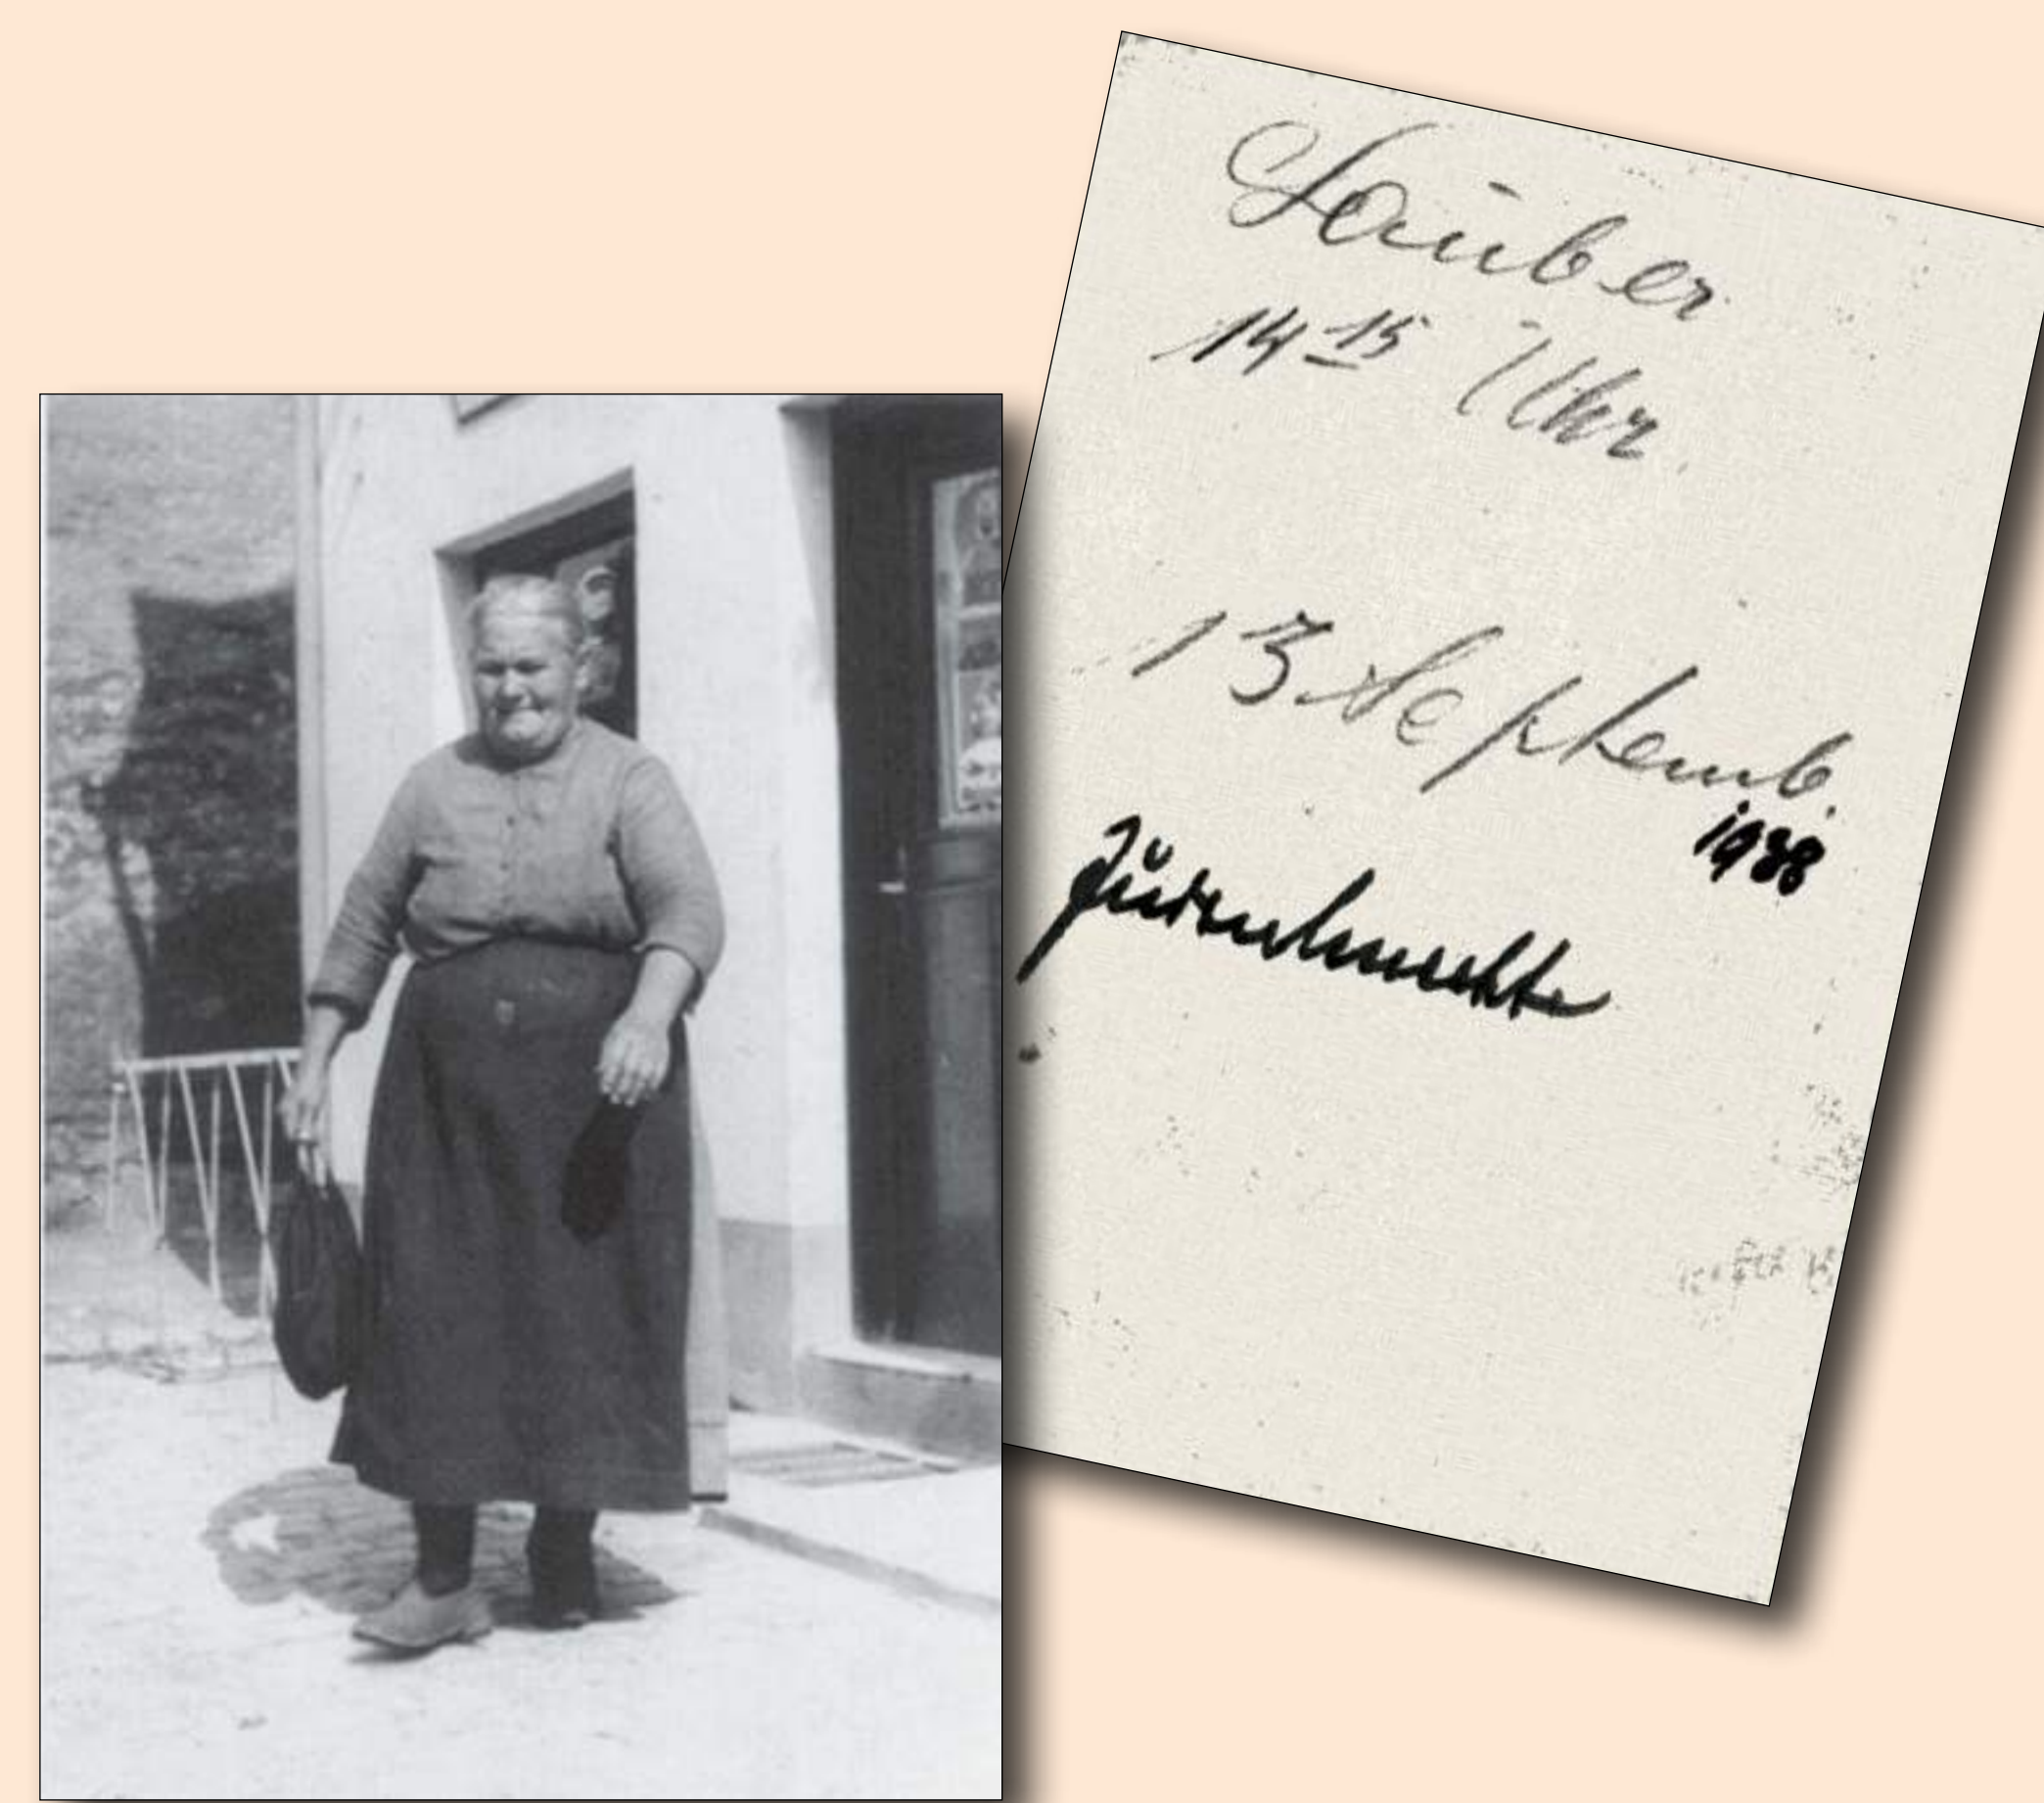 14 15 Uhr
13 Septemb.
1938
Judenknechte